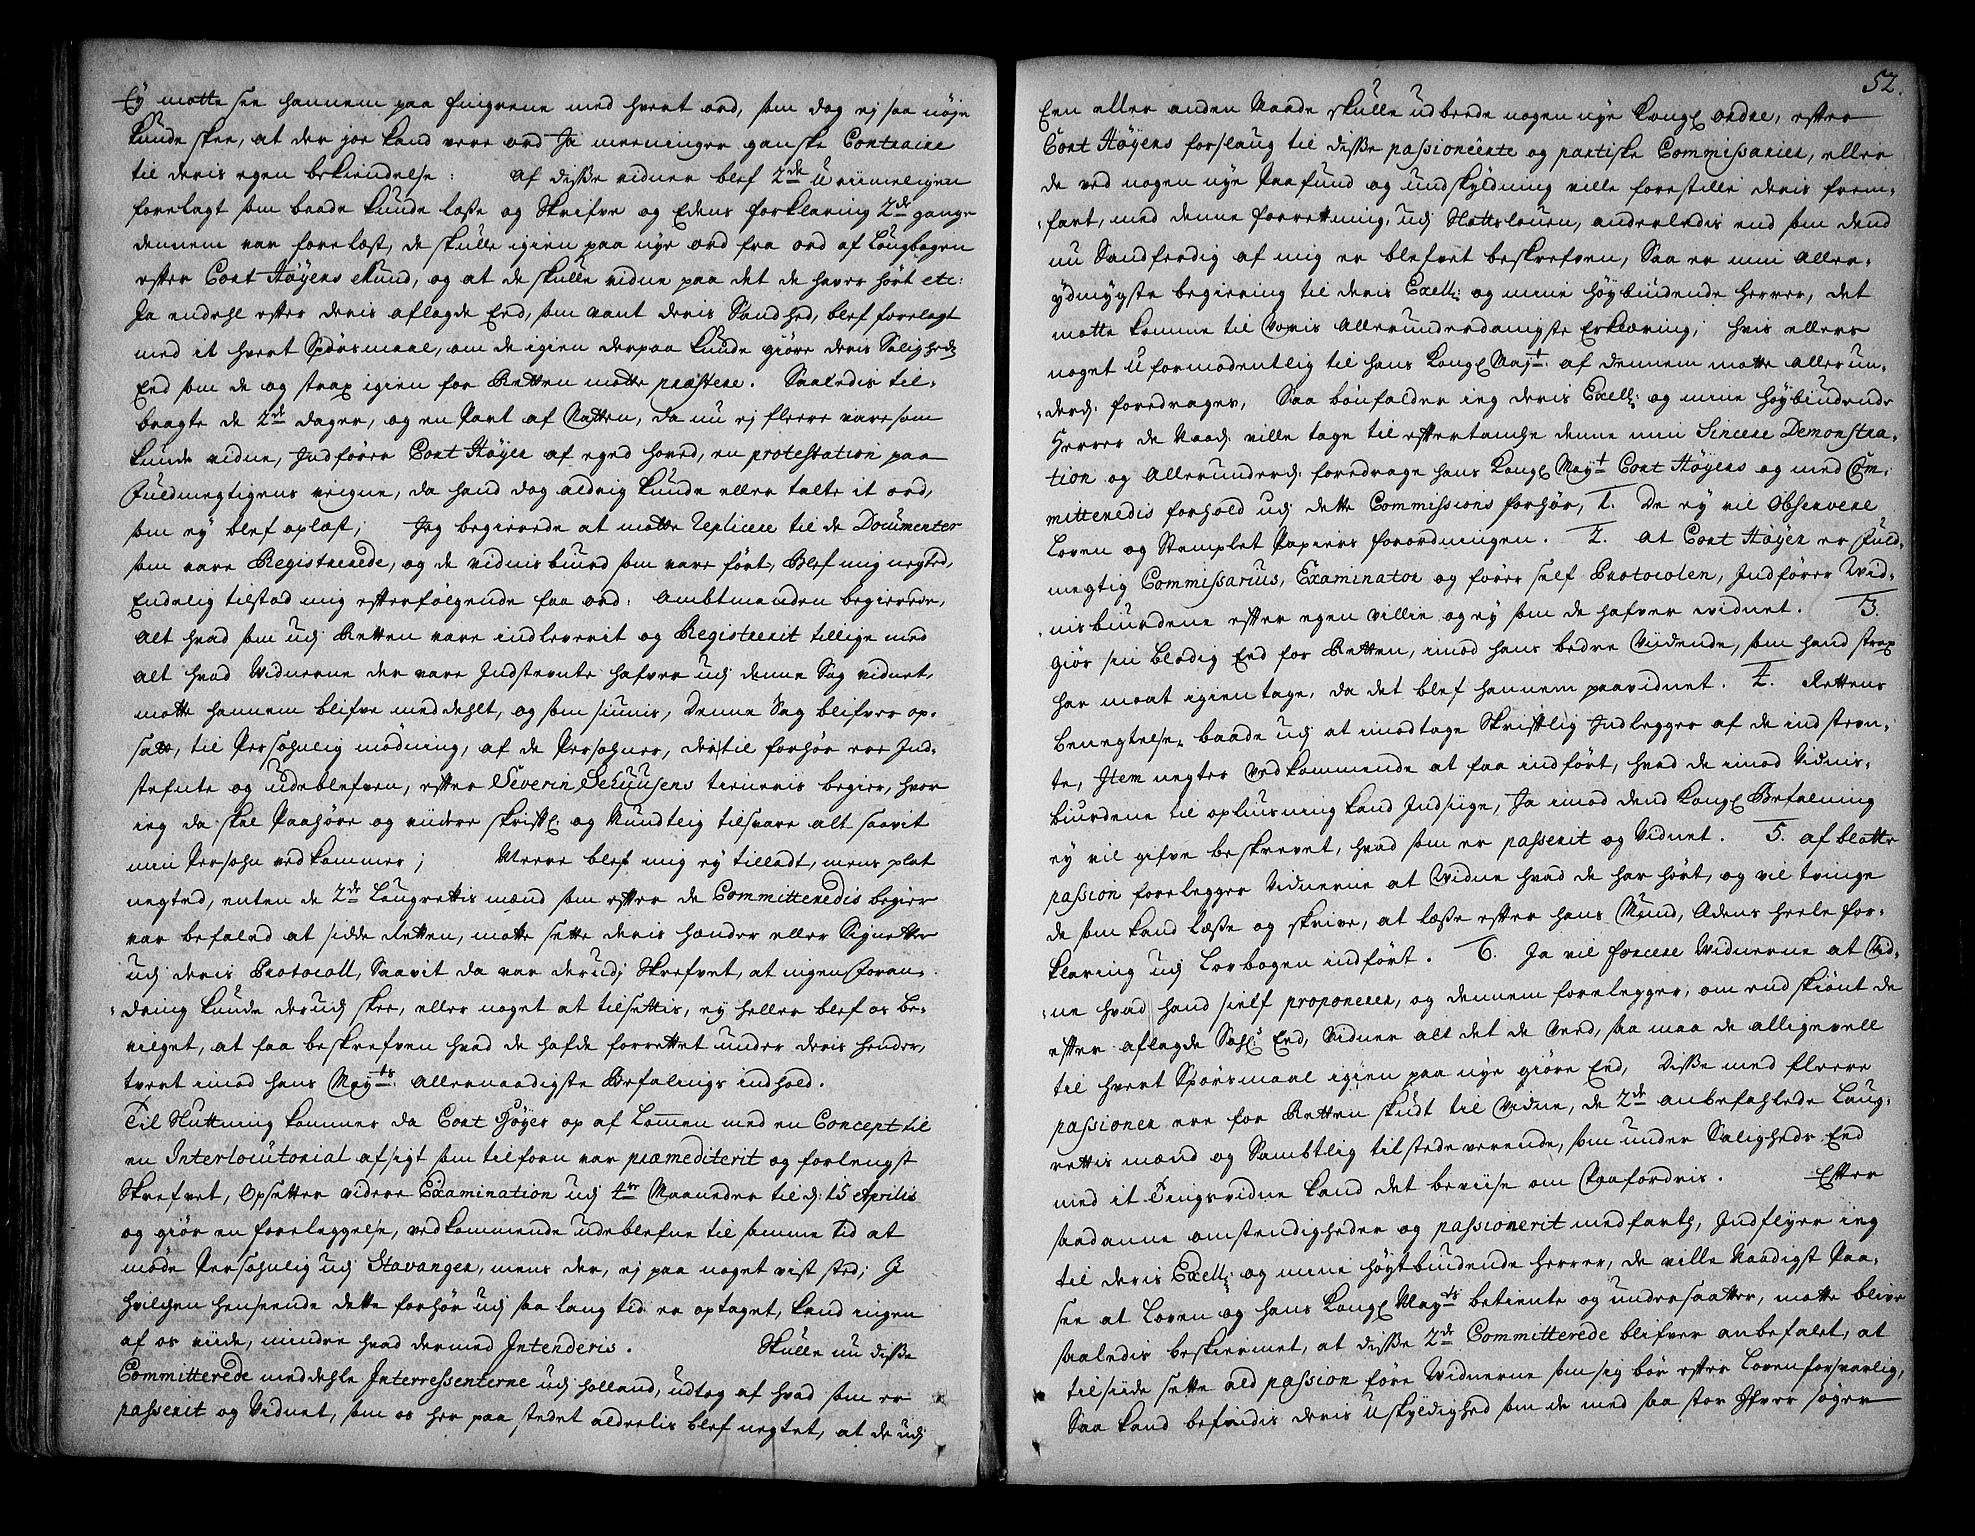 Ey motte see hannem paa fingrene med hvert ord, som dog ej saa nøje
kunde skee, at der joe kand vere ord Ja meeninger ganske Contraire
til deris egen bekiendelse: af disse vidner blef 2de Urimeligen
forelagt som baade kunde læse og Skrifve og Edens forklaring 2de gange
dennem var forelæst, de skulle igien paa nye ord fra ord af Laugbogen
efter Cort Høyers Mund, og at de skulle vidne paa det de haver hørt etc:
Ja endehl efter deris aflagde Eed, som vant deris Sandhed, blef forelagt
med it hvert Spørsmaal, om de igien derpaa kunde giøre deris Saligheds
Eed som de og strax igien for Retten motte præstere. Saaledis til-
bragte de 2de dager, og en Part af Natten, da nu ej fleere vare som
kunde vidne, Indfører Cort Høyer af eged hoved, en protestation paa
Fuldmegtigens veigne, da hand dog aldrig kunde eller talte it ord,
som ey blef oplæst; Jeg begierede at motte Replicere til de Documenter
som vare Registrerede, og de vidnisbuurd som vare ført, Blef mig negted,
Endelig tilstod mig efterfølgende faa ord: Ambtmanden begierede,
Alt hvad som udj Retten vare indleverit og Registrerit tillige med
alt hvad Vidnerne der vare Indstevnte hafver udj denne Sag vidnet,
motte hannem blifve meddehlt, og som siunis, denne Sag blifver op-
satt, til Persohnlig mødning, af de Persohner, dertil forhør ere Ind-
stefnte og udeblefven, efter Severin Sehuusens tieneris begier, hvor
ieg da skal Paahøre og viidere skriftl: og Mundtlig tilsvare alt saavit
min Persohn vedkommer; Meere blef mig ey tilladt, mens plat
negted, enten de 2de Laugrettis mænd som efter de Committeredis begier
var befaled at sidde Retten, motte sette deris hænder eller Signetter
udj deris Protocoll, Saavit da var derudj Skrefvet, at ingen Foran-
dring kunde derudj skee, eller noget at tilsettis, ey heller blef os be-
vilget, at faa beskrefven hvad de hafde forrettet under deris hender,
tvert imod hans Mayts: Allernaadigste Befalings indhold.
Til Sluttning kommer da Cort Høyer op af Lommen med en Concept til
en Interlocutorial afsigt som tilforn var præmediterit og forlengst
Skrefvet, Opsetter videre Examination udj 4re Maaneder til d: 15 Aprilis
og giør en foreleggelse, vedkommende udeblefne til samme tid at
møde Persohnlig udj Stavanger, mens der, ej paa noget vist sted; I
hvilchen henseende dette forhør udj saa lang tid er optaget, kand ingen
af os viide, mindre hvad dermed Intenderis. Skulle nu disse
Committerede meddehle Interressenterne udj Holland, udtog af hvad som er
passerit og Vidnet, som os her paa stedet aldeelis blef negtet, at de udj
52.
Een eller anden Maade skulle udbede nogen nye Kongl ordre, efter
Cort Høyers forslaug til disse passionerte og partiske Commissarier, eller
de ved nogen nye Paafund og undskyldning ville forestille deris frem-
fart, med denne forrettning, udj Slottslouen, anderledis end som dend
nu Sandferdig af mig er blefvet beskrefven, Saa er min aller-
ydmygste begiering til deris Excell: og mine høybiudende Herrer, det
motte komme til Voris Allerunderdanigste Erklæring, hvis ellers
noget Uformodentlig til hans Kongl Mayt: af dennem motte allerun-
derd: foredrages, Saa bønfalder ieg deris Excell: og mine høybiudende
Herrer de Naad: ville tage til eftertancke denne min Sincere Demonstra-
tion og Allerunderd: foredrage hans Kongl Mayt Cort Høyers og med Com-
mitteredis forhold udj dette Commissions forhør, 1. De ey vil Observere
Loven og Stemplet Papiers forordningen. 2. At Cort Høyer er Fuld-
megtig Commissarius, Examinator og fører self Protocolen, Indfører Vid-
nisbiurdene efter egen villie og ey som de hafver vidnet. 3.
Giør sin Clodig Eed for Retten, imod hans bedre Viidende, som hand strax
har maat igientage, da det blef hannem paavidnet. 4. Rettens
Benegtelse, baade udj at imodtage Skriftlig Indlegger af de indstevn-
te, Item negter Vedkommende at faa indført, hvad de imod Vidnis-
biurdene til oplysning kand Indsige, Ja imod dend Kongl Befalning
ey vil gifve beskrevet, hvad som er passerit og Vidnet. 5. af blotte
passion forelegger Vidnerne at Vidne hvad de har hørt, og vil tvinge
de som kand læse og skrive, at læse efter hans Mund, Edens heele for-
klaring udj Lovbogen indført. 6. Ja vil forcere Vidnerne at Vid-
ne hvad hand sielf proponerer, og dennem forelegger, om endskiønt de
efter aflagde Sahl: Eed, Vidner alt det de Veed, saa maa de alligevell
til hvert Spørsmaal igien paa nye giøre Eed, Disse med fleere
passioner ere for Retten skudt til Vidne, de 2de anbefahlede Laug-
rettis mænd og Sambtlig tilstedeverende, som under Saligheds Eed
med it Tingsvidne kand det beviise om Paafordris. Efter
saadanne omstendigheder og passionerit medfarth, Indflyer ieg
til deris Excell: og mine høytbiudende Herrer, de ville Naadigst Paa-
see at Loven og hans Kongl Mayts betiente og undersaatter, motte blive
saaledis beskiermet, at disse 2de Committerede blifver anbefalet, at
tilsiide sette ald passion føre Vidnerne som sig bør efter Loven forsvarlig,
Saa kand befindis deris Uskyldighed som de med saa stor Iver søger